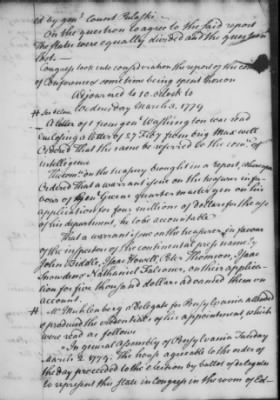 ed by genl Count Pulaski.
On the question to agree to the said report
The states were equally divided and the question
lost.
Congress took into consideration the report of the comee of
Conference & some time being spent thereon
Adjourned to 10 oClock to
Wednesday March 3. 1779
A letter of 1 from genl Washington was read
enclosing a letter of 27 Feby from brig Maxwell
Ordered That the same be referred to the come of
intelligence
The come on the treasury brought in a report, whereupon
Ordered That a warrant issue on the treasurer in fa-
vour of Genl Greene quarter master genl on his
application for four millions of dollars for the use
of his department, he to be accountable
That a warrant issue on the treasurer in favour
of the inspectors of the continental press namely
John Biddle, Isaac Howell, Peter Thomson, Isaac
Snowden & Nathaniel Falconer, on their applica-
tion for five thousand dollars advanced them on
account.
Mr Muhlenberg a Delegate for Pensylvania attended
& produced the credentials of his appointment which
were read as follows
In general assembly of Pensylvania Tuesday
March 2. 1779. The house agreeable to the order of
the day proceeded to the election by ballot of delegates
to represent this state in Congress in the room of